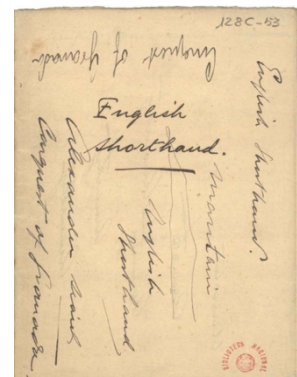 128C-53
Conquest of Granada
English Shorthand.
English
Shorthand.
Mountain
English
Shorthand
Alexander
Conquest of Granada
BIBLIOTECA NACIONAL